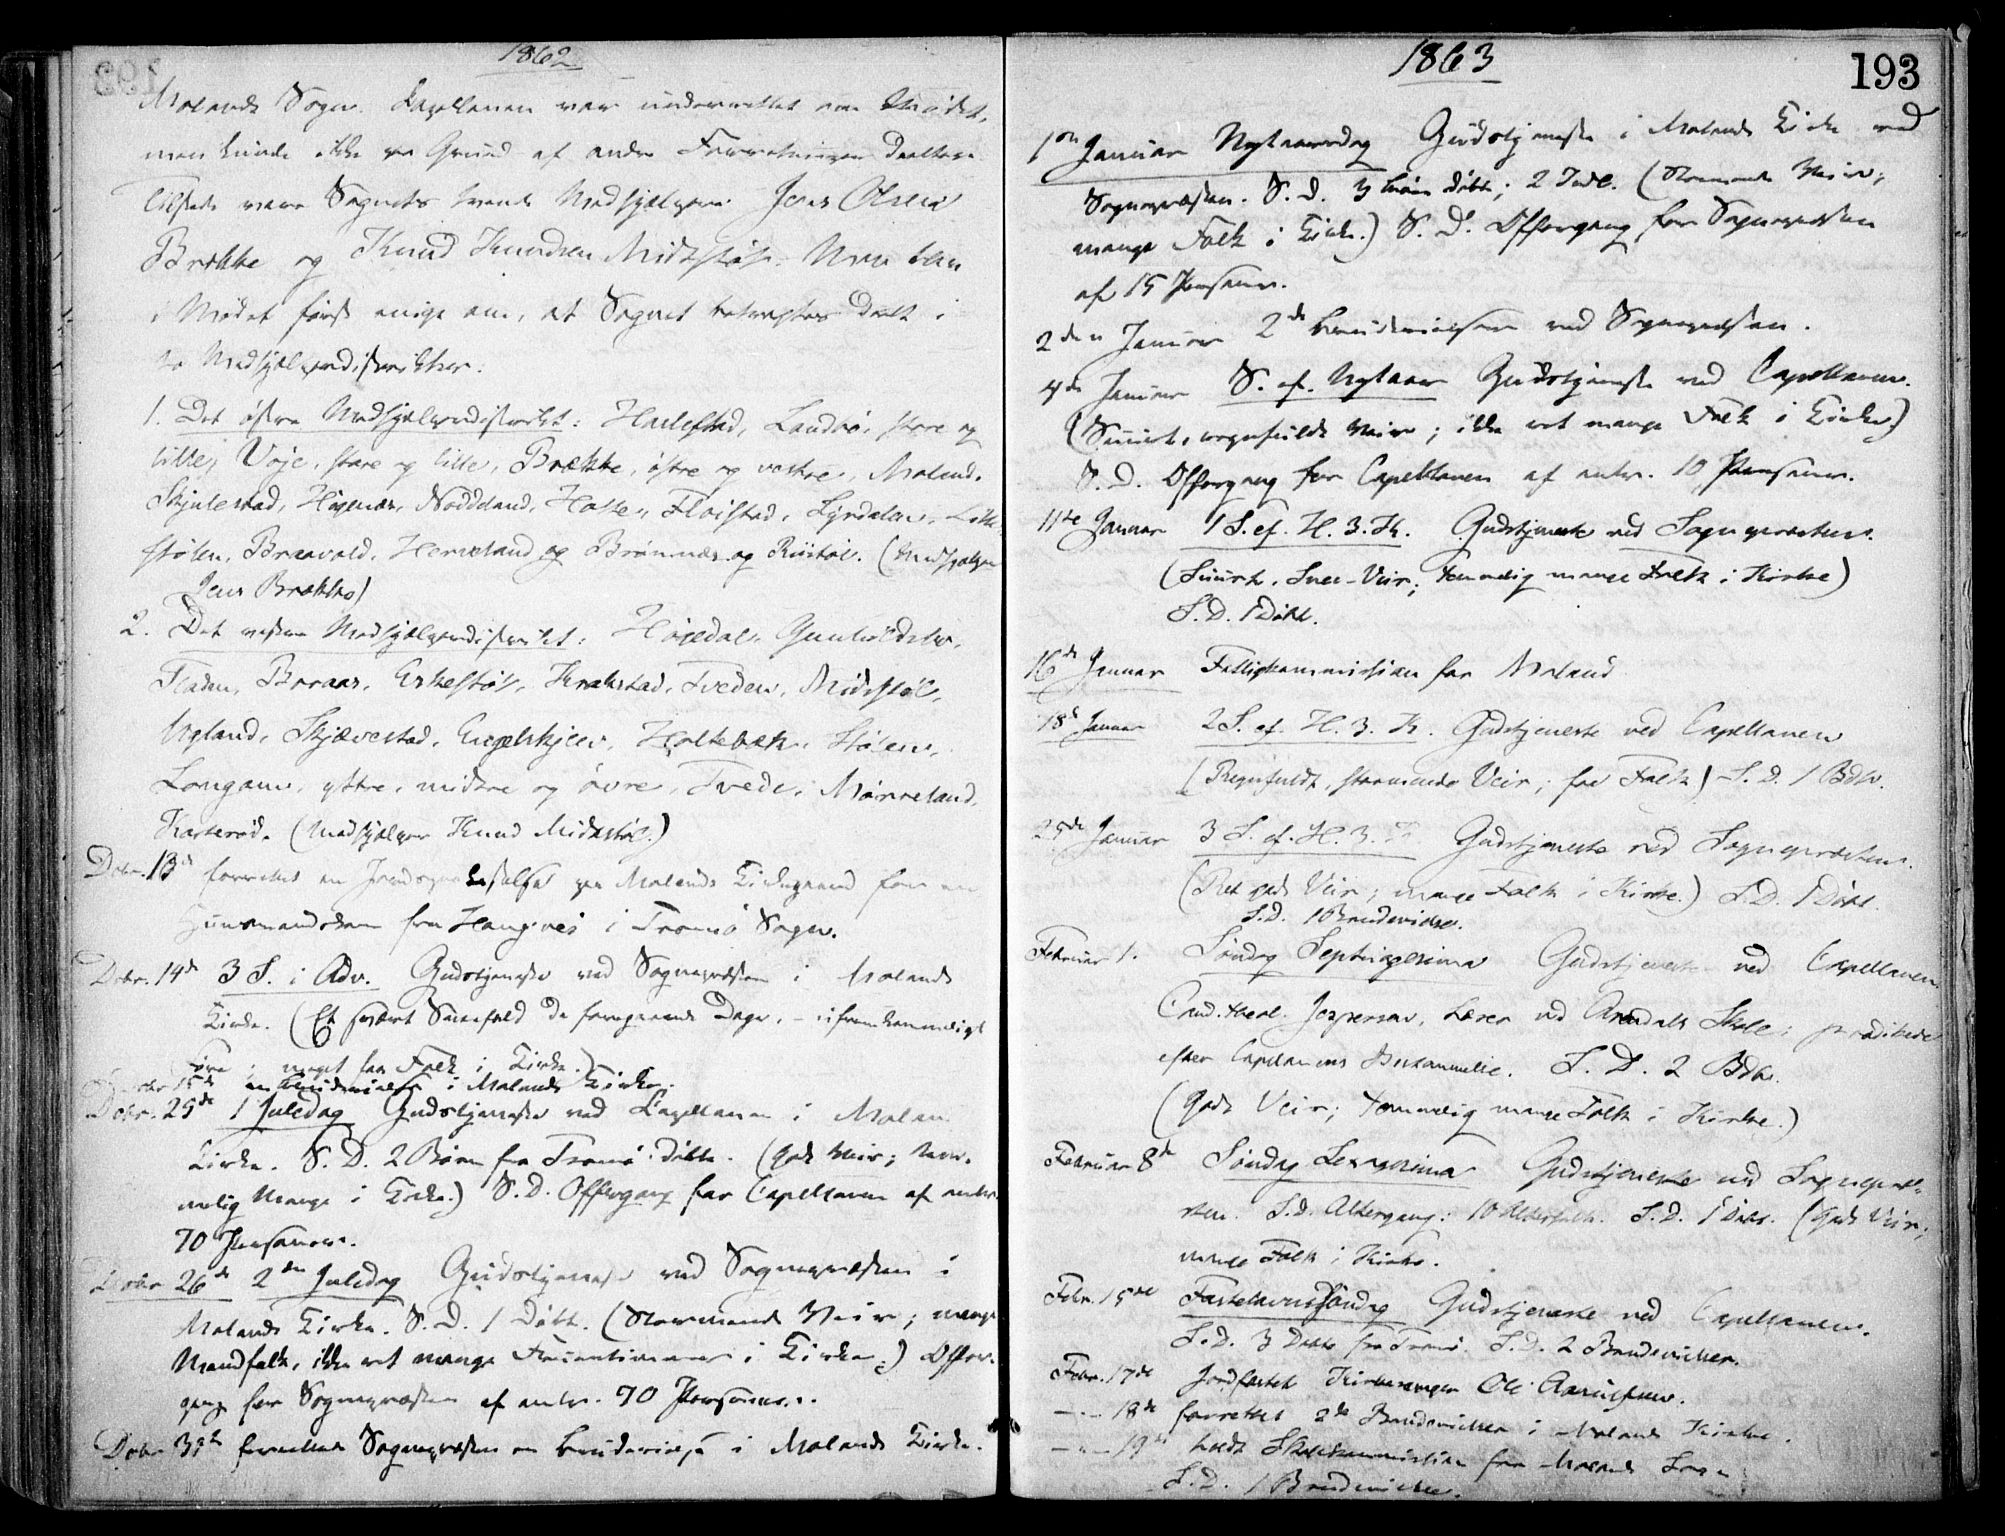 1862
Molands Sogn. Capellanen var underrettet om Mødet,
men kunde ikke paa Grund af andre Forretninger deeltage.
Tilstede vare Sognets tvende Medhjælpere Jens Olsen
Brække og Knud Knudsen Midtstøl. Man blev
i Mødet først enige om, at Sognet betragtes deelt i
to Medhjælperdistrikter:
1. Det østre Medhjælperdistrikt: Harlestad, Landvi, store og
lille, Voje, store og lille, Brække, østre og vestre, Moland,
Skjulestad, Høgenæs, Nøddeland, Holte, Fløistad, Lyrdalen, Lille-
stølen, Braavold, Herreland og Brønnæs og Riisdal. (Medhjælper
Jens Brække)
2. Det vestre Medhjælperdistrikt: Højedal, Gunhildsbo,
Fladen, Braaas, Eskestøl, Krakstad, Tveden, Midtstøl,
Nyland, Skjævestad, Engelskjøn, Holtebæk, Stølen,
Longum, yttre, midtre og øvre, Tvede, Mørreland,
Kasterød. (Medhjælper Knud Midtstøl.)
Decbr. 13de forrettet en Jordspaakastelse paa Molands Kirkegaard for en
Huusmandskone fra i Tromø Sogn.
Decbr. 14de 3 S. i Adv. Gudstjeneste ved Sognepræsten i Molands
Kirke. (Et svært Sneefald de foregaaende Dage, – ufremkommeligt
Føre; meget faa Folk i Kirke.)
Decbr 15de en Brudevielse i Molands Kirke.
Decbr. 25de 1 Juledag Gudstjeneste ved Capellanen i Moland
Kirke. S. D. 2 Børn fra Tromø døbte. (Godt Veir; tem-
melig Mange i Kirke.) S. D. Offergang for Capellanen af omtr.
70 Personer.
Decbr 26de 2den Juledag Gudstjeneste ved Sognepræsten i
Molands Kirke. S. D. 1 Døbt. (Stormende Veir; mange
Mandfolk, ikke ret mange Fruentimmer i Kirke.) Offer-
gang for Sognepræsten af omtr. 70 Personer.
Decbr 31te forrettede Sognepræsten en Brudevielse i Molands Kirke.
1863
193
1ste Januar Nytaarsdag Gudstjeneste i Molands Kirke ved
Sognepræsten. S. D. 3 Børn døbte; 2 Indl. (Stormende Veir;
mange Folk i Kirke.) S. D. Offergang for Sognepræsten
af 15 Personer.
2den Januar 2de Brudevielser ved Sognepræsten.
4de Januar S. ef. Nytaar Gudstjeneste ved Capellanen.
(Smukt, regnfuldt Veir; ikke ret mange Folk i Kirke)
S. D. Offergang for Capellanen af omtr. 10 Personer.
11te Januar 1 S. ef. H. 3. K. Gudstjeneste ved Sognepræsten.
(Smukt, Snee-Veir; temmelig mange Folk i Kirke)
S. D. 1 Døbt.
16de Januar Fattigkommission for Moland
18de Januar 2 S. ef. H. 3. K. Gudstjeneste ved Capellanen
(Regnfuldt, stormende Veir; faa Folk) S. D. 1 Bdv.
25de Januar 3 S. ef. H. 3. K. Gudstjeneste ved Sognepræsten.
(Ret godt Veir; mange Folk i Kirke.) S. D. 1 Døbt.
S. D. 1 Brudevielse.
Februar 1. Søndag Septuagesima Gudstjeneste ved Capellanen.
Cand. theol. Jespersen, Lærer ved Arendals Skole, prædikede
efter Capellanens Anmodning. S. D. 2 Bdv.
(Godt Veir; temmelig mange Folk i Kirke.)
Februar 8de Søndag Sexagesima Gudstjeneste ved Sognepræ-
sten. S. D. Altergang: 10 Altersfolk. S. D. 1 Døbt. (Godt Veir;
mange Folk i Kirke.
Febr. 15de Fastelavnssøndag Gudstjeneste ved Capellanen.
S. D. 3 Døbte fra Tromø. S. D. 2 Brudevielser.
Febr. 17de Jordfæstet Kirkesanger Ole Aanulfsen.
– " – 18de forrettet 2de Brudevielser i Molands Kirke.
– " – 19de holdt Skolekommission for Molands Sogn
S. D. 1 Brudevielse.